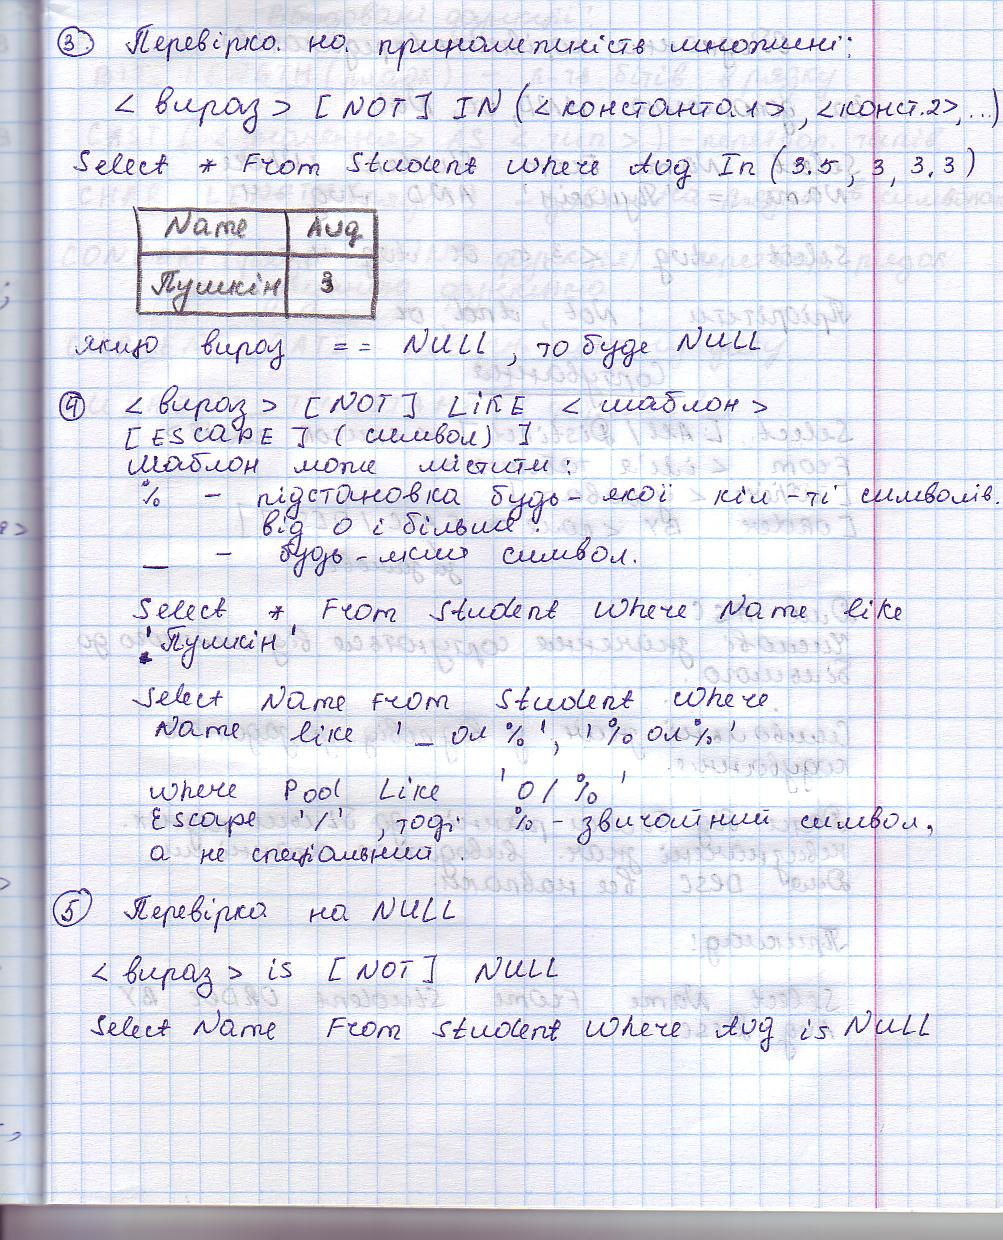 ③ Перевірка на приналежність множині:
< вираз > [ NOT ] IN ( <константа1>, <конст.2>, ...)
Select * From Student where Avg In ( 3.5, 3, 3.3 )
Name Avg
Пушкін 3
якщо вираз == NULL, то буде NULL
④ < вираз > [ NOT ] LIKE < шаблон >
[ ESCAPE ] ( символ) ]
Шаблон може містити:
% - підстановка будь-якої кіл-ті символів.
від 0 і більше.
_ - будь-який символ.
Select * From Student where Name like
'Пушкін'
Select Name From Student where
Name like '_ ол %', '% ол%'
where Pool Like '0/%'
Escape '/', тоді % - звичайний символ,
а не спеціальний.
⑤ Перевірка на NULL
< вираз > is [ NOT ] NULL
Select Name From Student where Avg is NULL